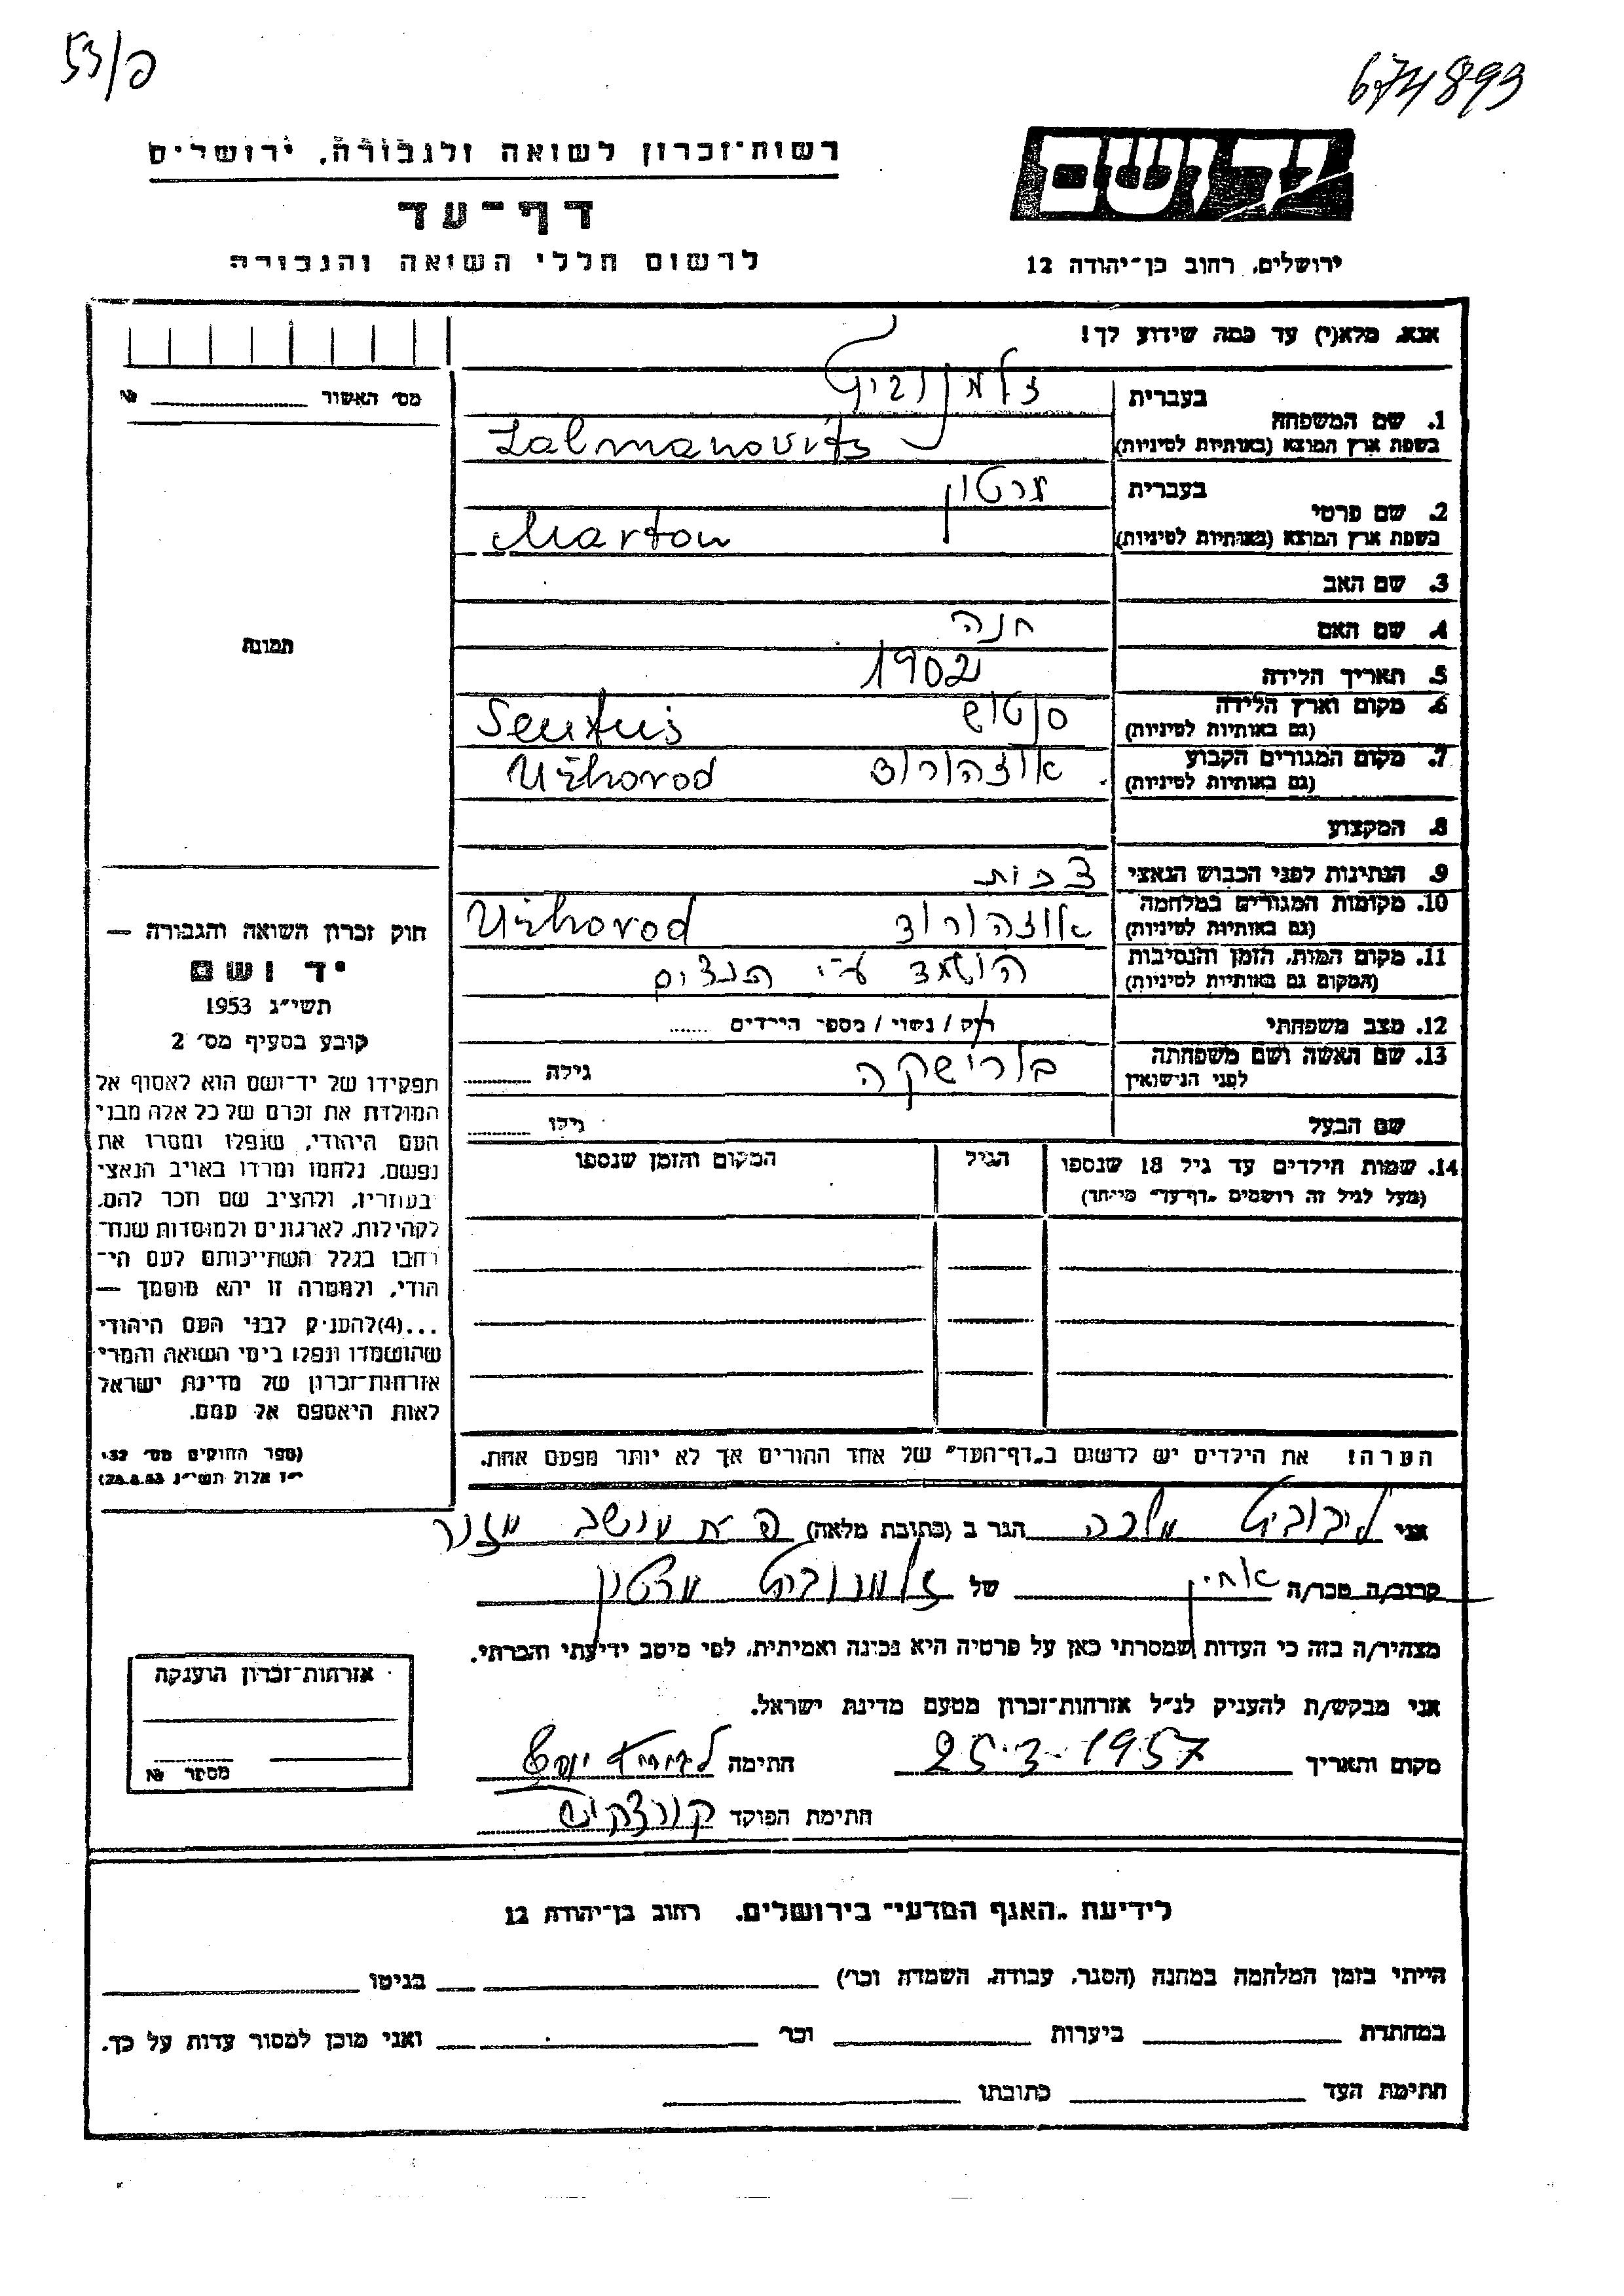 53/פ
674893
רשות־זכרון לשואה ולגבורה, ירושלים
דף־עד
לרשום חללי השואה והגבורה
יד ושם
ירושלים, רחוב בן־יהודה 12
אנא, מלא(י) עד כמה שידוע לך!
מס׳ האשור № 
1. שם המשפחה
בעברית זלמנוביץ
בשפת ארץ המוצא (באותיות לטיניות) Zalmanovits
2. שם פרטי
בעברית מרטון
בשפת ארץ המוצא (באותיות לטיניות) Marton
3. שם האב
4. שם האם חנה
5. תאריך הלידה 1902
6. מקום וארץ הלידה סנטוש
(גם באותיות לטיניות)
7. מקום המגורים הקבוע אוזהורוד Užhorod
(גם באותיות לטיניות)
8. המקצוע
9. הנתינות לפני הכבוש הנאצי צ׳כית
10. מקומות המגורים במלחמה אוזהורוד Užhorod
(גם באותיות לטיניות)
11. מקום המות, הזמן והנסיבות הושמד ע״י הנצים
(המקום גם באותיות לטיניות)
12. מצב משפחתי רוק / נשוי / מספר הילדים ......
13. שם האשה ושם משפחתה בורישקה גילה ........
לפני הנישואין
שם הבעל גילו ........
14. שמות הילדים עד גיל 18 שנספו הגיל המקום והזמן שנספו
(מעל לגיל זה רושמים „דף־עד״ מייוחד)
הערה! את הילדים יש לרשום ב„דף־העד״ של אחד ההורים אך לא יותר מפעם אחת.
תמונה
חוק זכרון השואה והגבורה —
יד ושם
תשי״ג 1953
קובע בסעיף מס׳ 2
תפקידו של יד־ושם הוא לאסוף אל
המולדת את זכרם של כל אלה מבני
העם היהודי, שנפלו ומסרו את
נפשם, נלחמו ומרדו באויב הנאצי
בעוזריו, ולהציב שם וזכר להם,
לקהילות, לארגונים ולמוסדות שנח־
רחבו בגלל השתייכותם לעם הי־
הודי, ולמטרה זו יהא מוסמך —
...(4)להעניק לבני העם היהודי
שהושמדו ונפלו בימי השואה והמרי
אזרחות־זכרון של מדינת ישראל
לאות היאספם אל עמם.
(ספר החוקים מס׳ 132
י״ז אלול תשי״ג 28.8.53)
אני ליבוביץ מלכה הגר ב (כתובת מלאה) פ״ת מושב מזור
קרוב/ה מכר/ה אחין של זלמנוביץ מרטון
מצהיר/ה בזה כי העדות שמסרתי כאן על פרטיה היא נכונה ואמיתית, לפי מיטב ידיעתי והכרתי.
אני מבקש/ת להעניק לנ״ל אזרחות־זכרון מטעם מדינת ישראל.
מקום ותאריך 25-3-1957 חתימה
חתימת הפוקד
אזרחות־זכרון הוענקה
מספר №
לידיעת „האגף המדעי״ בירושלים, רחוב בן־יהודה 12
הייתי בזמן המלחמה במחנה (הסגר, עבודה, השמדה וכר׳) בגיטו
במחתרת ביערות וכר׳ ואני מוכן למסור עדות על כך.
חתימת העד כתובתו